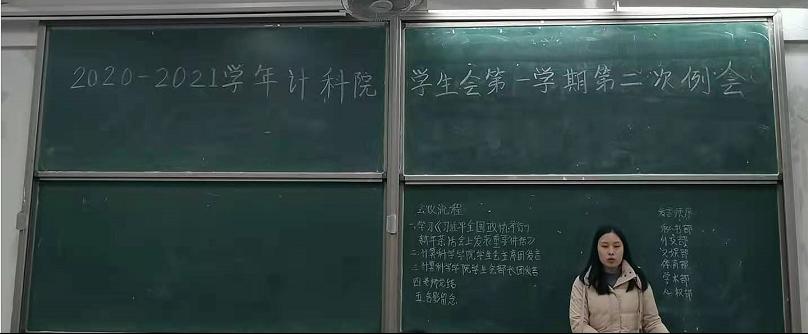 2020-2021学年计科院 学生会第一学期第二次例会
会议流程
一.学习《习近平在全国政协举行
新年茶话会上发表重要讲话》
二.计算科学学院学生会主席团发言
三.计算科学学院学生会部长团发言
四.老师总结
五.合影留念
发言顺序
秘书部
外交部
文娱部
体育部
学术部